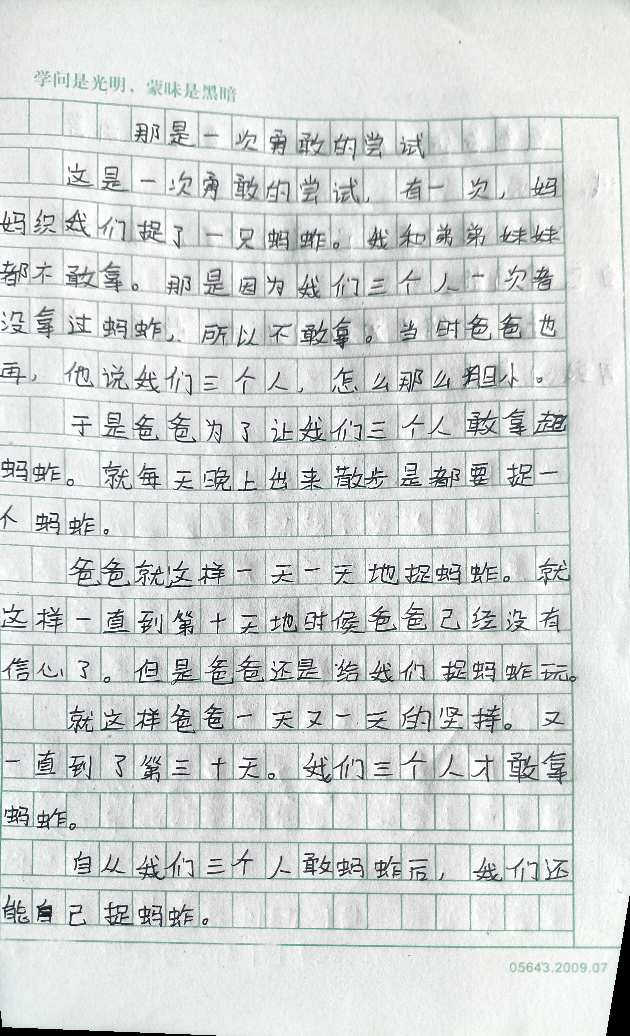 学问是光明，蒙昧是黑暗
那是一次勇敢的尝试
这是一次勇敢的尝试，有一次，妈
妈织我们捉了一只蚂蚱。我和弟弟妹妹
都不敢拿。那是因为我们三个人一次者
没拿过蚂蚱，所以不敢拿。当时爸爸也
再，他说我们三个人，怎么那么胆小。
于是爸爸为了让我们三个人敢拿起
蚂蚱。就每天晚上出来散步是都要捉一
个蚂蚱。
爸爸就这样一天一天地捉蚂蚱。就
这样一直到第十天地时候爸爸己经没有
信心了。但是爸爸还是给我们捉蚂蚱玩。
就这样爸爸一天又一天的坚持。又
一直到了第三十天。我们三个人才敢拿
蚂蚱。
自从我们三个人敢蚂蚱后，我们还
能自己捉蚂蚱。
05643.2009.07